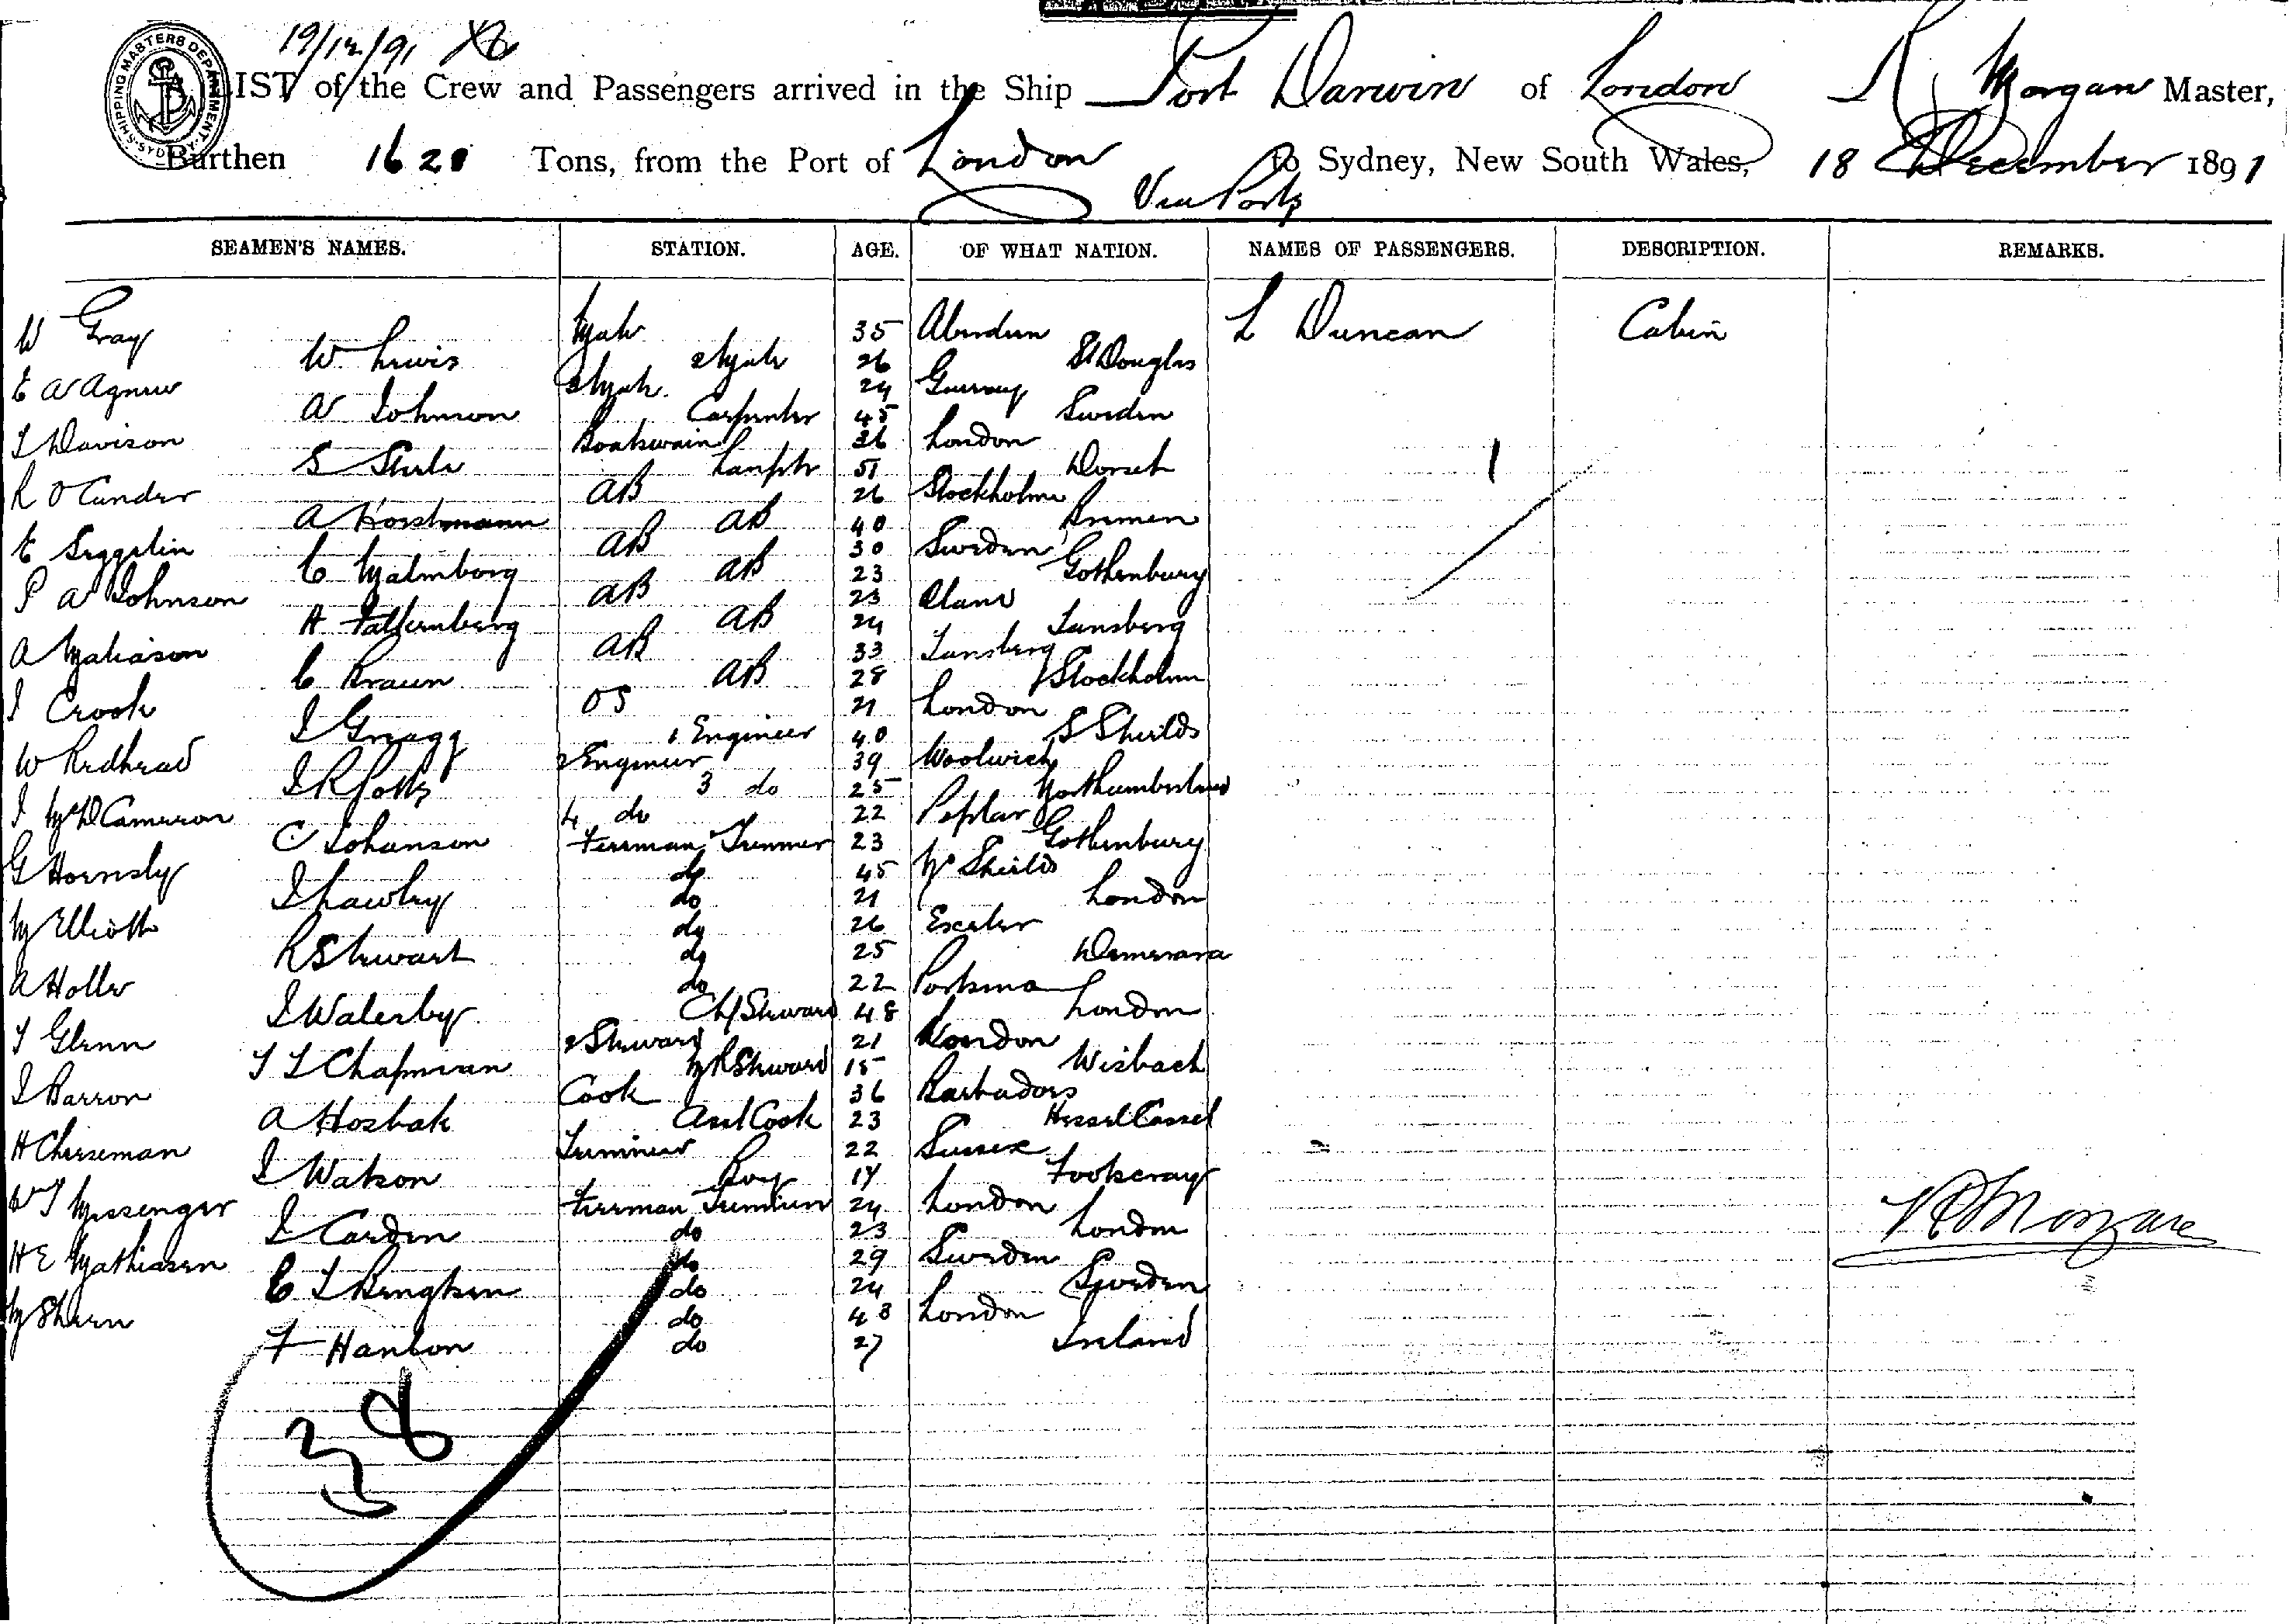 19/12/91
SHIPPING MASTERS DEPARTMENT SYDNEY
A LIST of the Crew and Passengers arrived in the Ship Port Darwin of London R Morgan Master,
Burthen 1620 Tons, from the Port of London to Sydney, New South Wales, 18 December 1891
Via Ports
SEAMEN'S NAMES. STATION. AGE. OF WHAT NATION. NAMES OF PASSENGERS. DESCRIPTION. REMARKS.
W Gray Mate 35 Aberdeen L Duncan Cabin
W Lewis 2 Mate 26 St Douglas
E W Agnew 3 Mate 24 Guernsey
A Johnson Carpenter 45 Sweden
J Davison Boatswain 36 London 1
S Steele Lamptr 51 Dorset
AB 26 Stockholm
A Horstmann AB 40 Bremen
E Seggelin AB 30 Sweden
C Malmborg AB 23 Gothenburg
P A Johnson AB 23 Oland
H Falkenberg AB 24 Tunsberg
A Matiason AB 33 Tunsberg
C Braun AB 28 Stockholm
J Crook OS 21 London
J Gragg 1 Engineer 40 S Shields
W Redhead 2 Engineer 39 Woolwich
J R Potts 3 do 25 Northumberland
J McD Cameron 4 do 22 Poplar
C Johanson Fireman Trimmer 23 Gothenburg
G Hornsby do 45 N Shields
J Lawley do 21 London
M Elliott do 26 Exeter
R Stewart do 25 Demerara
A Holler do 22 Portsmo
J Waterby Chf Steward 48 London
T Glenn 2 Steward 21 London
T L Chapman M R Steward 15 Wisbach
J Barron Cook 36 Barbadoes
A Hosbak Asst Cook 23 Hessel Cassel
H Cheeseman Trimmer 22 Sussex
J Watson Boy 17 Footscray
W J Messenger Fireman Trimmer 24 London
J Carden do 23 London
H E Mathiasen do 29 Sweden
C J Bengtsen do 24 Sweden
M Shern do 43 London
F Hanlon do 27 Ireland
R Morgan
38